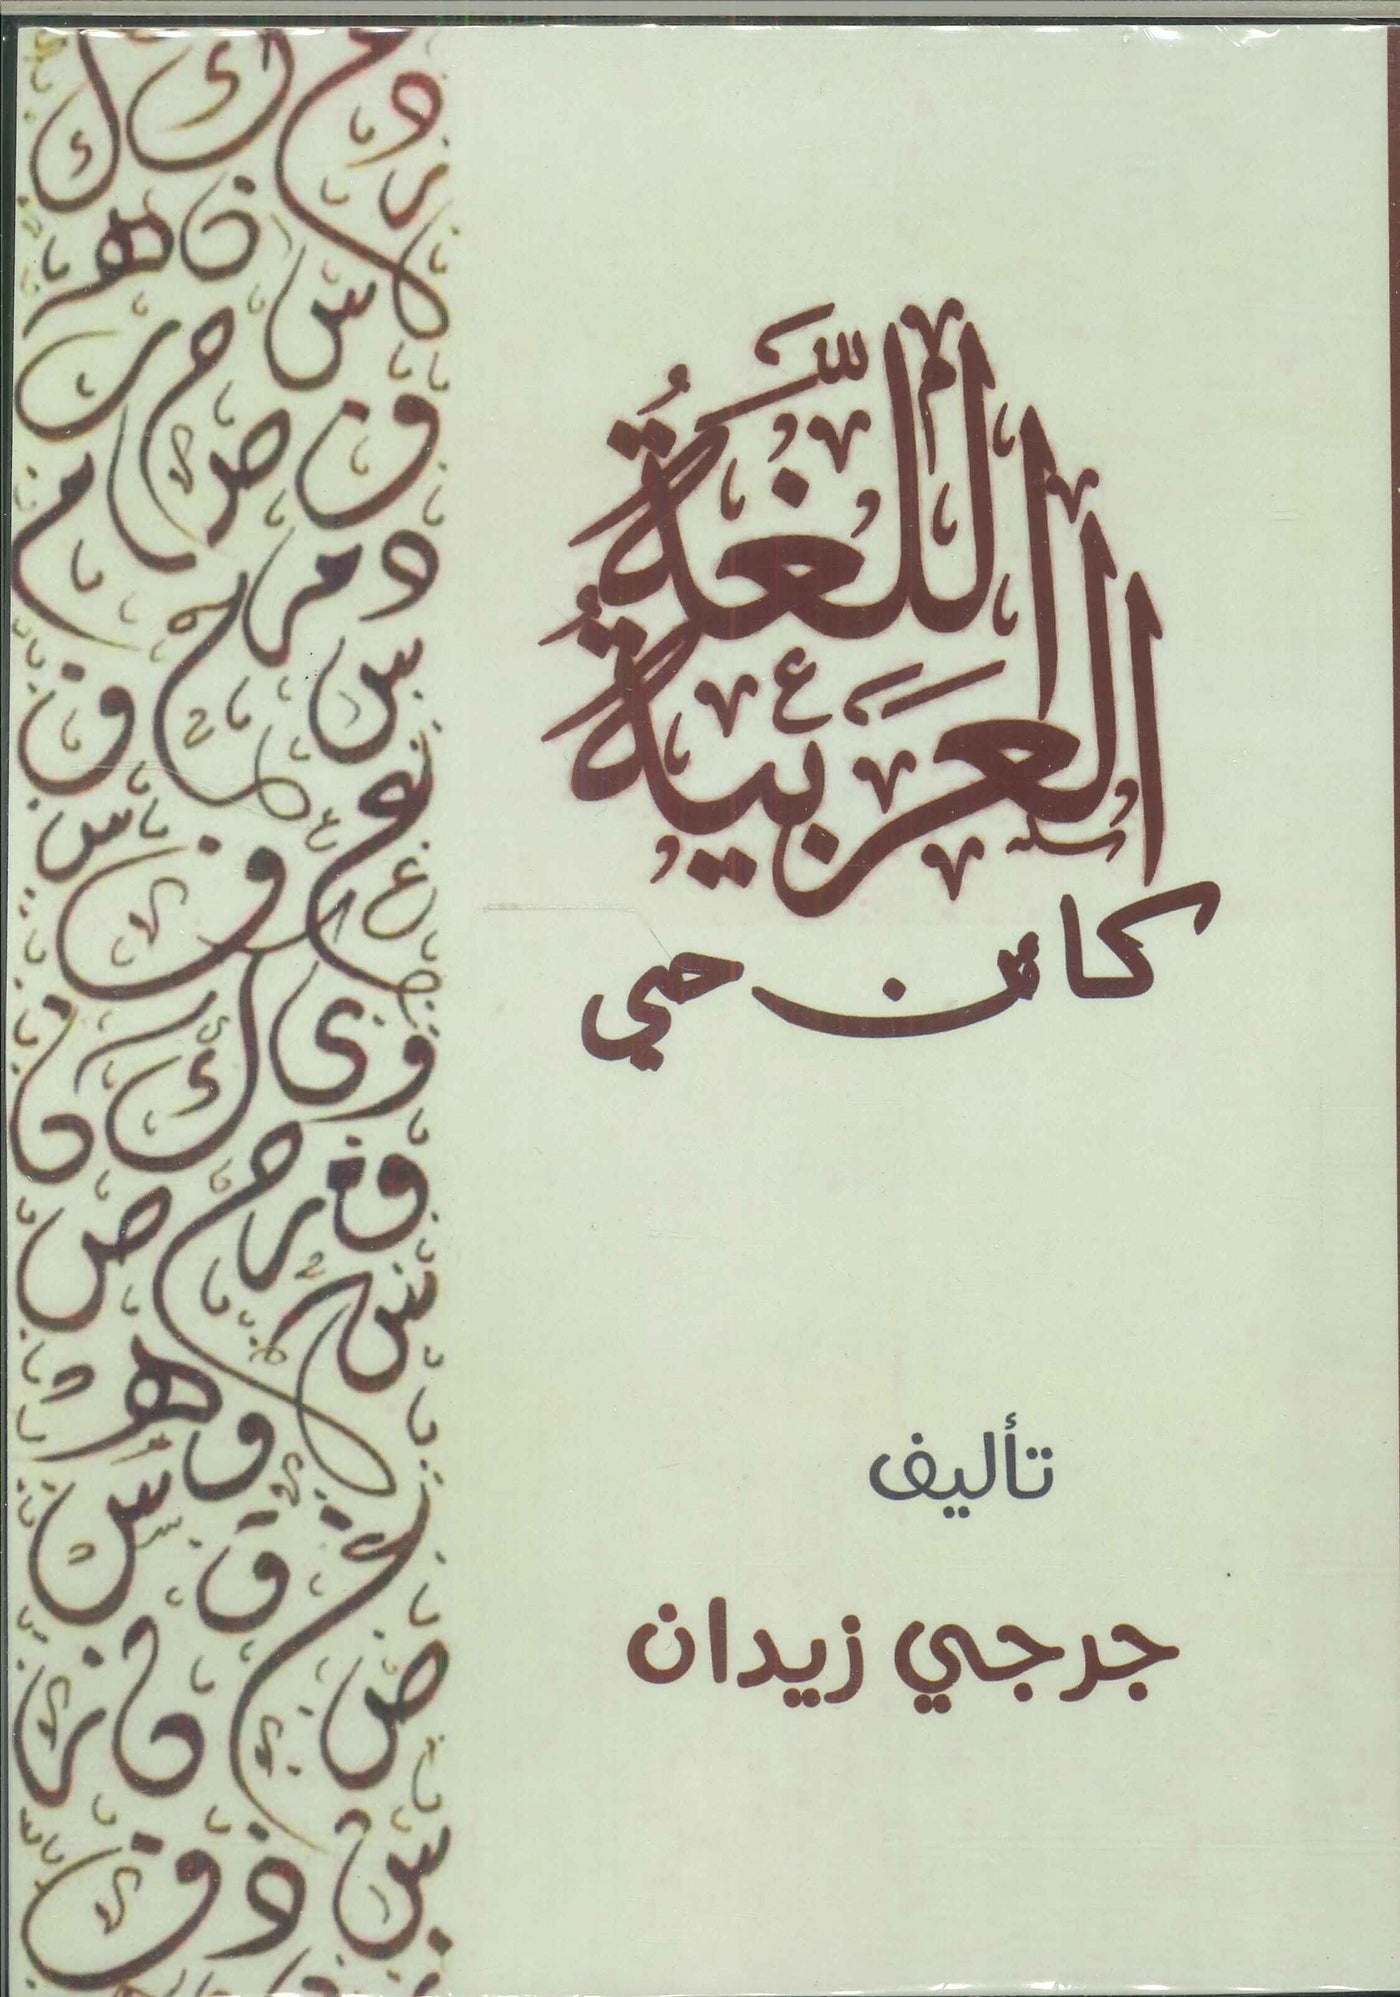 اللُّغَةُ
العَرَبِيَّةُ
كائن حي
تأليف
جرجي زيدان